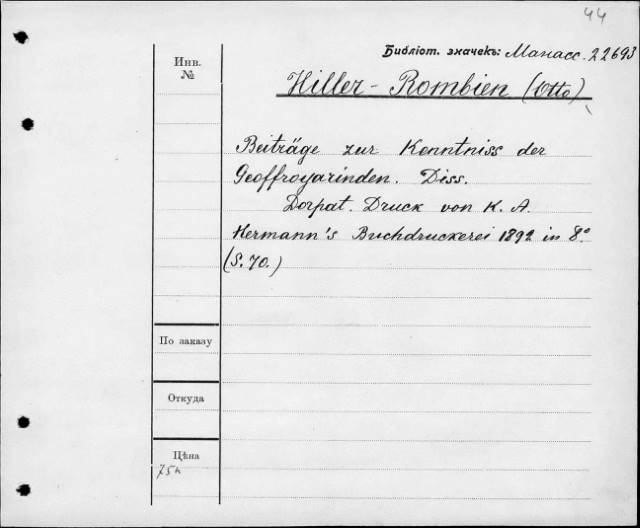 44
Библіот. значекъ: Манасс. 22693
Инв.
№
Hiller-Rombien (Otto)
Beiträge zur Kenntniss der
Geoffroyarinden. Diss.
Dorpat. Druck von K. A.
Hermann's Buchdruckerei 1892 in 8°
(S. 70.)
По заказу
Откуда
Цѣна
75к